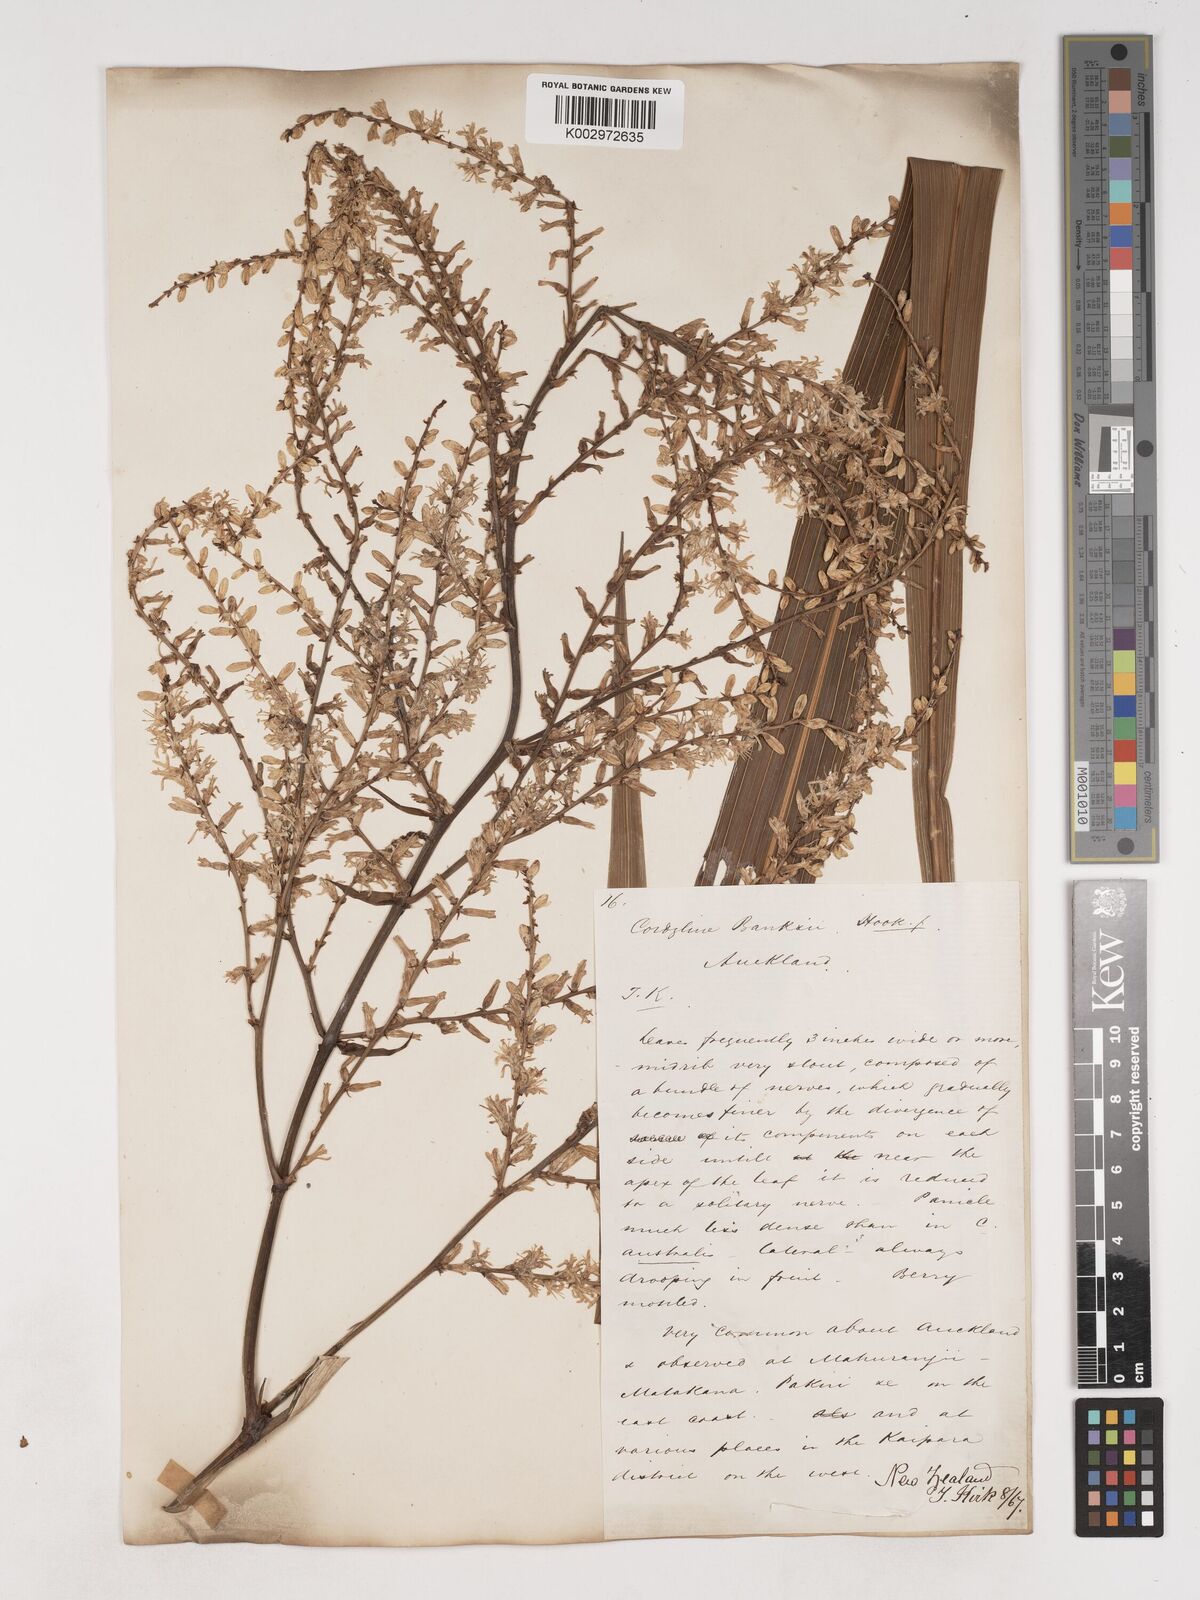 ROYAL BOTANIC GARDENS KEW
K002972635
16.
Cordyline Banksii. Hook. f.
Auckland.
T. K.
Leaves frequently 3 inches wide or more,
midrib very stout, composed of
a bundle of nerves, which gradually
becomes finer by the divergence of
its components on each
side untill near the
apex of the leaf it is reduced
to a solitary nerve. Panicle
much less dense than in C.
australis - lateral always
drooping in fruit. Berry
mottled.
Very common about Auckland
& observed at Mahurangi -
Matakana. Pakiri &c on the
east coast. and at
various places in the Kaipara
district on the west. New Zealand
T. Kirk 8/67.
inches
Density
Don Williams
M001010
centimetres
Kew
Royal Botanic Gardens
0 1 2 3 4 5 6 7 8 9 10
cm
copyright reserved